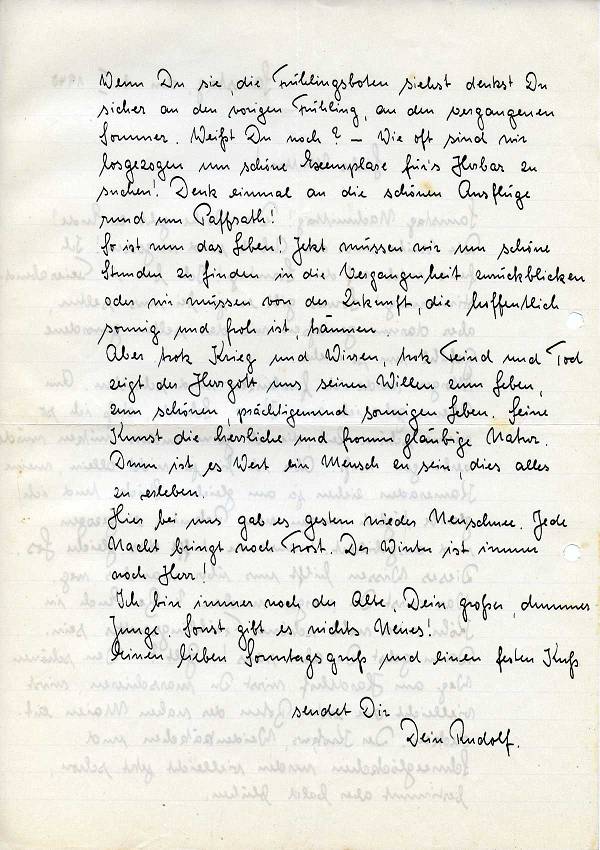 Wenn Du sie, die Frühlingsboten siehst denkst Du
sicher an den vorigen Frühling, an den vergangenen
Sommer. Weißt Du noch? – Wie oft sind wir
losgezogen um schöne Exemplare für's Herbar zu
suchen! Denk einmal an die schönen Ausflüge
rund um Paffrath!
So ist nun das Leben! Jetzt müssen wir um schöne
Stunden zu finden in die Vergangenheit zurückblicken
oder wir müssen von der Zukunft, die hoffentlich
sonnig und froh ist, träumen.
Aber trotz Krieg und Wirren, trotz Feind und Tod
zeigt der Herrgott uns seinen Willen zum Leben,
zum schönen, prächtigen und sonnigen Leben. Seine
Kunst die herrliche und fromm gläubige Natur.
Drum ist es Wert ein Mensch zu sein, dies alles
zu erleben.
Hier bei uns gab es gestern wieder Neuschnee. Jede
Nacht bringt noch Frost. Der Winter ist immer
noch Herr!
Ich bin immer noch der Alte, Dein großer, dummer
Junge. Sonst gibt es nichts Neues!
Einen lieben Sonntagsgruß und einen festen Kuß
sendet Dir
Dein Rudolf.